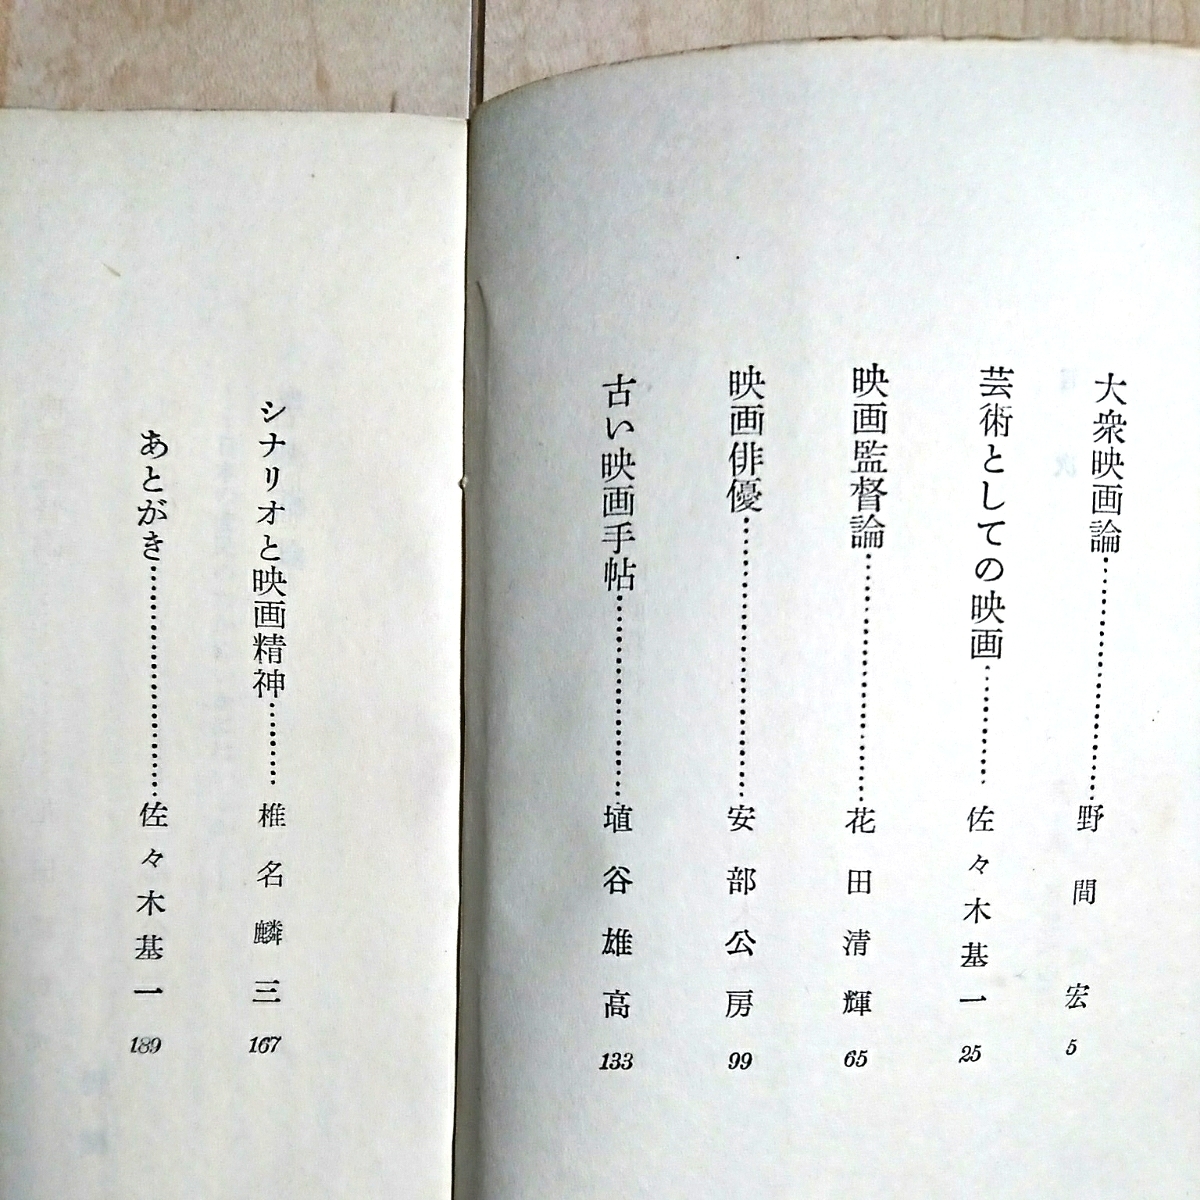 大衆映画論…………野間宏 5
芸術としての映画…………佐々木基一 25
映画監督論…………花田清輝 65
映画俳優…………安部公房 99
古い映画手帖…………埴谷雄高 133
シナリオと映画精神…………椎名麟三 167
あとがき…………佐々木基一 189